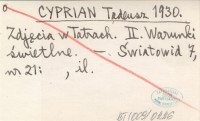 CYPRIAN Tadeusz 1930.
Zdjęcia w Tatrach. II. Warunki
świetlne. — Światowid 7,
nr 21: , il.